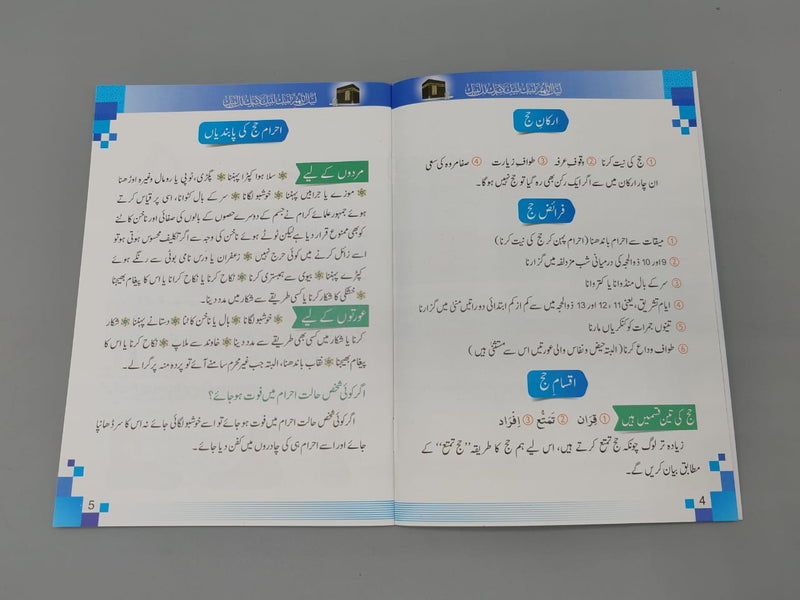 ارکانِ حج
① حج کی نیت کرنا ② وقوفِ عرفہ ③ طوافِ زیارت ④ صفا مروہ کی سعی
ان چار ارکان میں سے اگر ایک رکن بھی رہ گیا تو حج نہیں ہوگا۔
فرائضِ حج
① میقات سے احرام باندھنا (احرام پہن کر حج کی نیت کرنا)
② 9 اور 10 ذوالحجہ کی درمیانی شب مزدلفہ میں گزارنا
③ سر کے بال منڈوانا یا کتروانا
④ ایام تشریق، یعنی 11، 12 اور 13 ذوالحجہ میں سے کم از کم ابتدائی دو راتیں منیٰ میں گزارنا
⑤ تینوں جمرات کو کنکریاں مارنا
⑥ طوافِ وداع کرنا (البتہ حیض و نفاس والی عورتیں اس سے مستثنیٰ ہیں)
اقسامِ حج
حج کی تین قسمیں ہیں ① قِرَان ② تَمَتُّع ③ اِفْرَاد
زیادہ تر لوگ چونکہ حج تمتع کرتے ہیں، اس لیے ہم حج کا طریقہ ”حج تمتع“ کے
مطابق بیان کریں گے۔
4
احرام حج کی پابندیاں
مردوں کے لیے ❋ سلا ہوا کپڑا پہننا ❋ پگڑی، ٹوپی یا رومال وغیرہ اوڑھنا
❋ موزے یا جرابیں پہننا ❋ خوشبو لگانا ❋ سر کے بال کٹوانا، اسی پر قیاس کرتے
ہوئے جمہور علمائے کرام نے جسم کے دوسرے حصوں کے بالوں کی صفائی اور ناخن کاٹنے
کو بھی ممنوع قرار دیا ہے لیکن ٹوٹے ہوئے ناخن کی وجہ سے اگر تکلیف محسوس ہوتی ہو تو
اسے زائل کرنے میں کوئی حرج نہیں ❋ زعفران یا ورس نامی بوٹی سے رنگے ہوئے
کپڑے پہننا ❋ بیوی سے ہمبستری کرنا ❋ نکاح کرنا یا نکاح کرانا یا اس کا پیغام بھیجنا
❋ خشکی کا شکار کرنا یا کسی طریقے سے شکار میں مدد دینا۔
عورتوں کے لیے ❋ خوشبو لگانا ❋ بال یا ناخن کاٹنا ❋ دستانے پہننا ❋ شکار
کرنا یا شکار میں کسی بھی طریقے سے مدد دینا ❋ خاوند سے ملاپ ❋ نکاح کرنا یا اس کا
پیغام بھیجنا ❋ نقاب باندھنا، البتہ جب غیر محرم سامنے آئے تو پردہ منہ پر گرا لے۔
اگر کوئی شخص حالت احرام میں فوت ہو جائے؟
اگر کوئی شخص حالت احرام میں فوت ہو جائے تو اسے خوشبو لگائی جائے نہ اس کا سر ڈھانپا
جائے اور اسے احرام ہی کی چادروں میں کفن دیا جائے۔
5